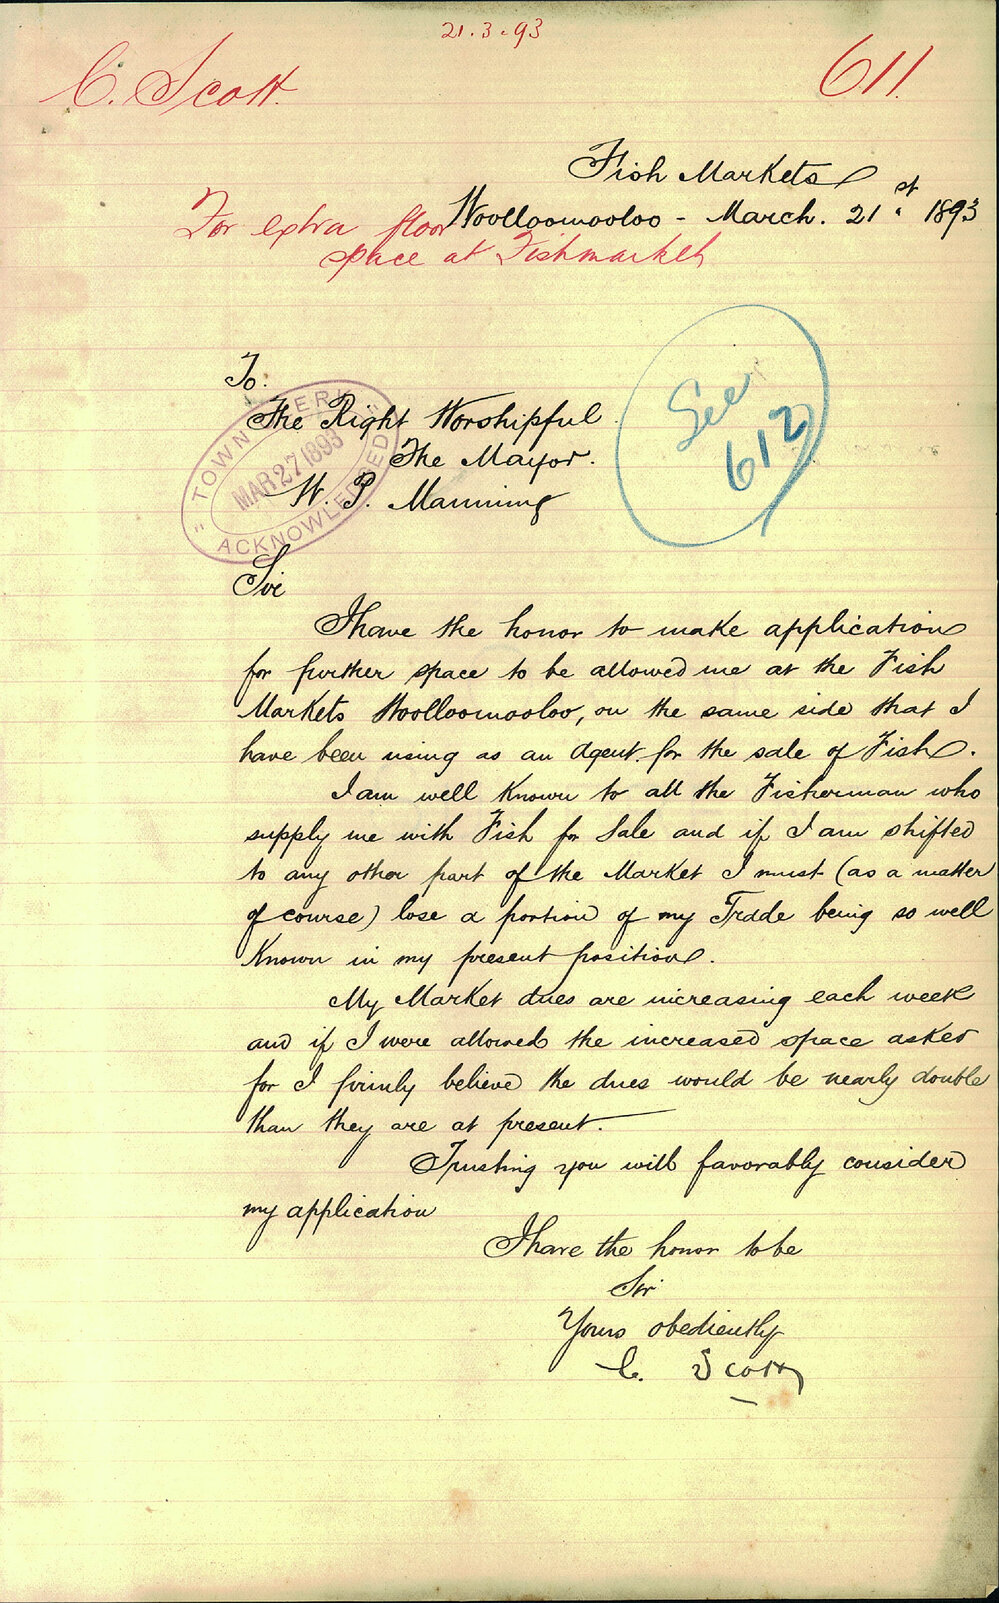 21.3.93
C. Scott
611.
Fish Markets
Woolloomooloo - March. 21st 1893
For extra floor
space at Fishmarket
To.
The Right Worshipful
The Mayor.
W. P. Manning
"TOWN CLERK"
MAR 27 1893
ACKNOWLEDGED
See
612
Sir
I have the honor to make application
for further space to be allowed me at the Fish
Markets Woolloomooloo, on the same side that I
have been using as an Agent for the sale of Fish.
I am well known to all the Fisherman who
supply me with Fish for Sale and if I am shifted
to any other part of the Market I must (as a matter
of course) lose a portion of my Trade being so well
Known in my present position.
My Market dues are increasing each week
and if I were allowed the increased space asked
for I firmly believe the dues would be nearly double
than they are at present.
Trusting you will favorably consider
my application
I have the honor to be
Sir
Yours obediently
C. Scott